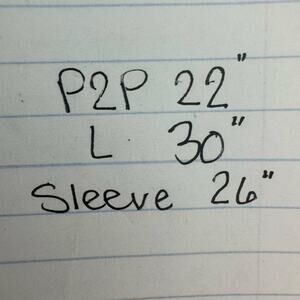 P2P 22"
L 30"
Sleeve 26"